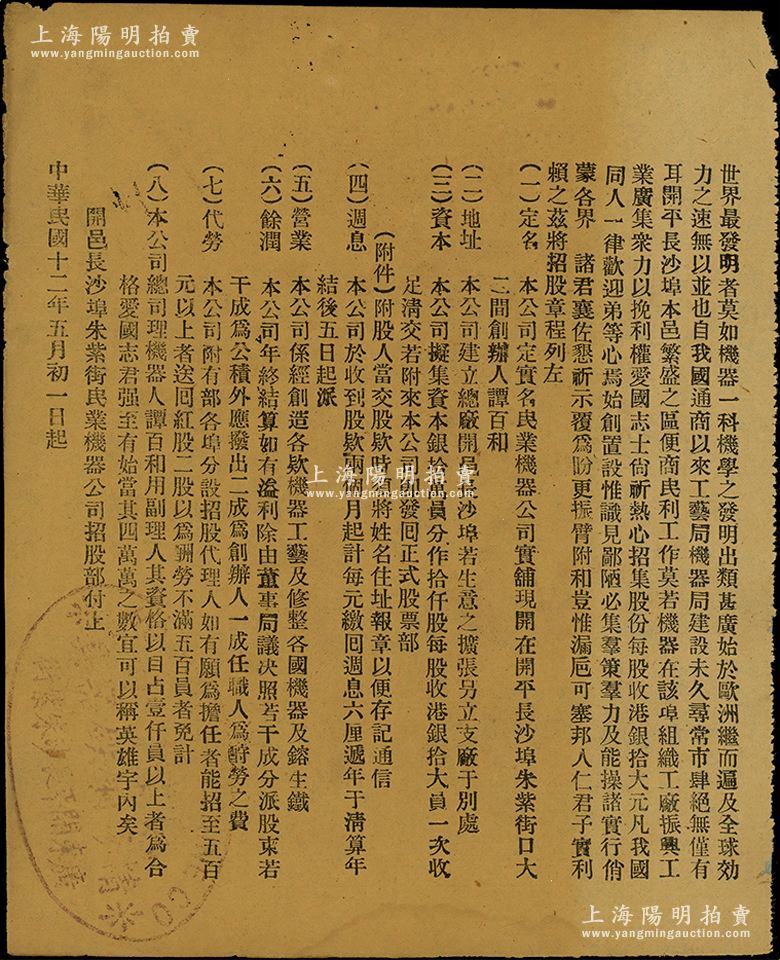 上海陽明拍賣
www.yangmingauction.com
上海陽明拍賣
www.yangmingauction.com
世界最發明者莫如機器一科機學之發明出類甚廣始於歐洲繼而遍及全球効
力之速無以並也自我國通商以來工藝局機器局建設未久尋常市肆絕無僅有
耳開平長沙埠本邑繁盛之區便商民利工作莫若機器在該埠組織工廠振興工
業廣集衆力以挽利權愛國志士尙祈熱心招集股份每股收港銀拾大元凡我國
同人一律歡迎弟等心焉始創置設惟識見鄙陋必集羣策羣力及能操諸實行俏
蒙各界 諸君襄佐懇祈示覆爲盼更振臂附和豈惟漏卮可塞邦人仁君子實利
賴之茲將招股章程列左
(一)定名 本公司定實名民業機器公司實鋪現開在開平長沙埠朱紫街口大
二間創辦人譚百和
(二)地址 本公司建立總廠開邑長沙埠若生意之擴張另立支廠于別處
(三)資本 本公司擬集資本銀拾萬員分作拾仟股每股收港銀拾大員一次收
足淸交若附來本公司卽發囘正式股票部
(附件)附股人當交股欵時須將姓名住址報章以便存記通信
(四)週息 本公司於收到股欵兩個月起計每元繳囘週息六厘遞年于淸算年
結後五日起派
(五)營業 本公司係經創造各欵機器工藝及修整各國機器及鎔生鐵
(六)餘潤 本公司年終結算如有溢利除由董事局議决照若干成分派股東若
干成爲公積外應撥出二成爲創辦人一成任職人爲酧勞之費
(七)代勞 本公司附有部各埠分設招股代理人如有願爲擔任者能招至五百
元以上者送囘紅股二股以爲酬勞不滿五百員者免計
(八)本公司總司理機器人譚百和用副理人其資格以自占壹仟員以上者爲合
格愛國志君强至有始當其四萬萬之數宜可以稱英雄宇內矣
開邑長沙埠朱紫街民業機器公司招股部付上
中華民國十二年五月初一日起
CO
上海陽明拍賣
www.yangmingauction.com